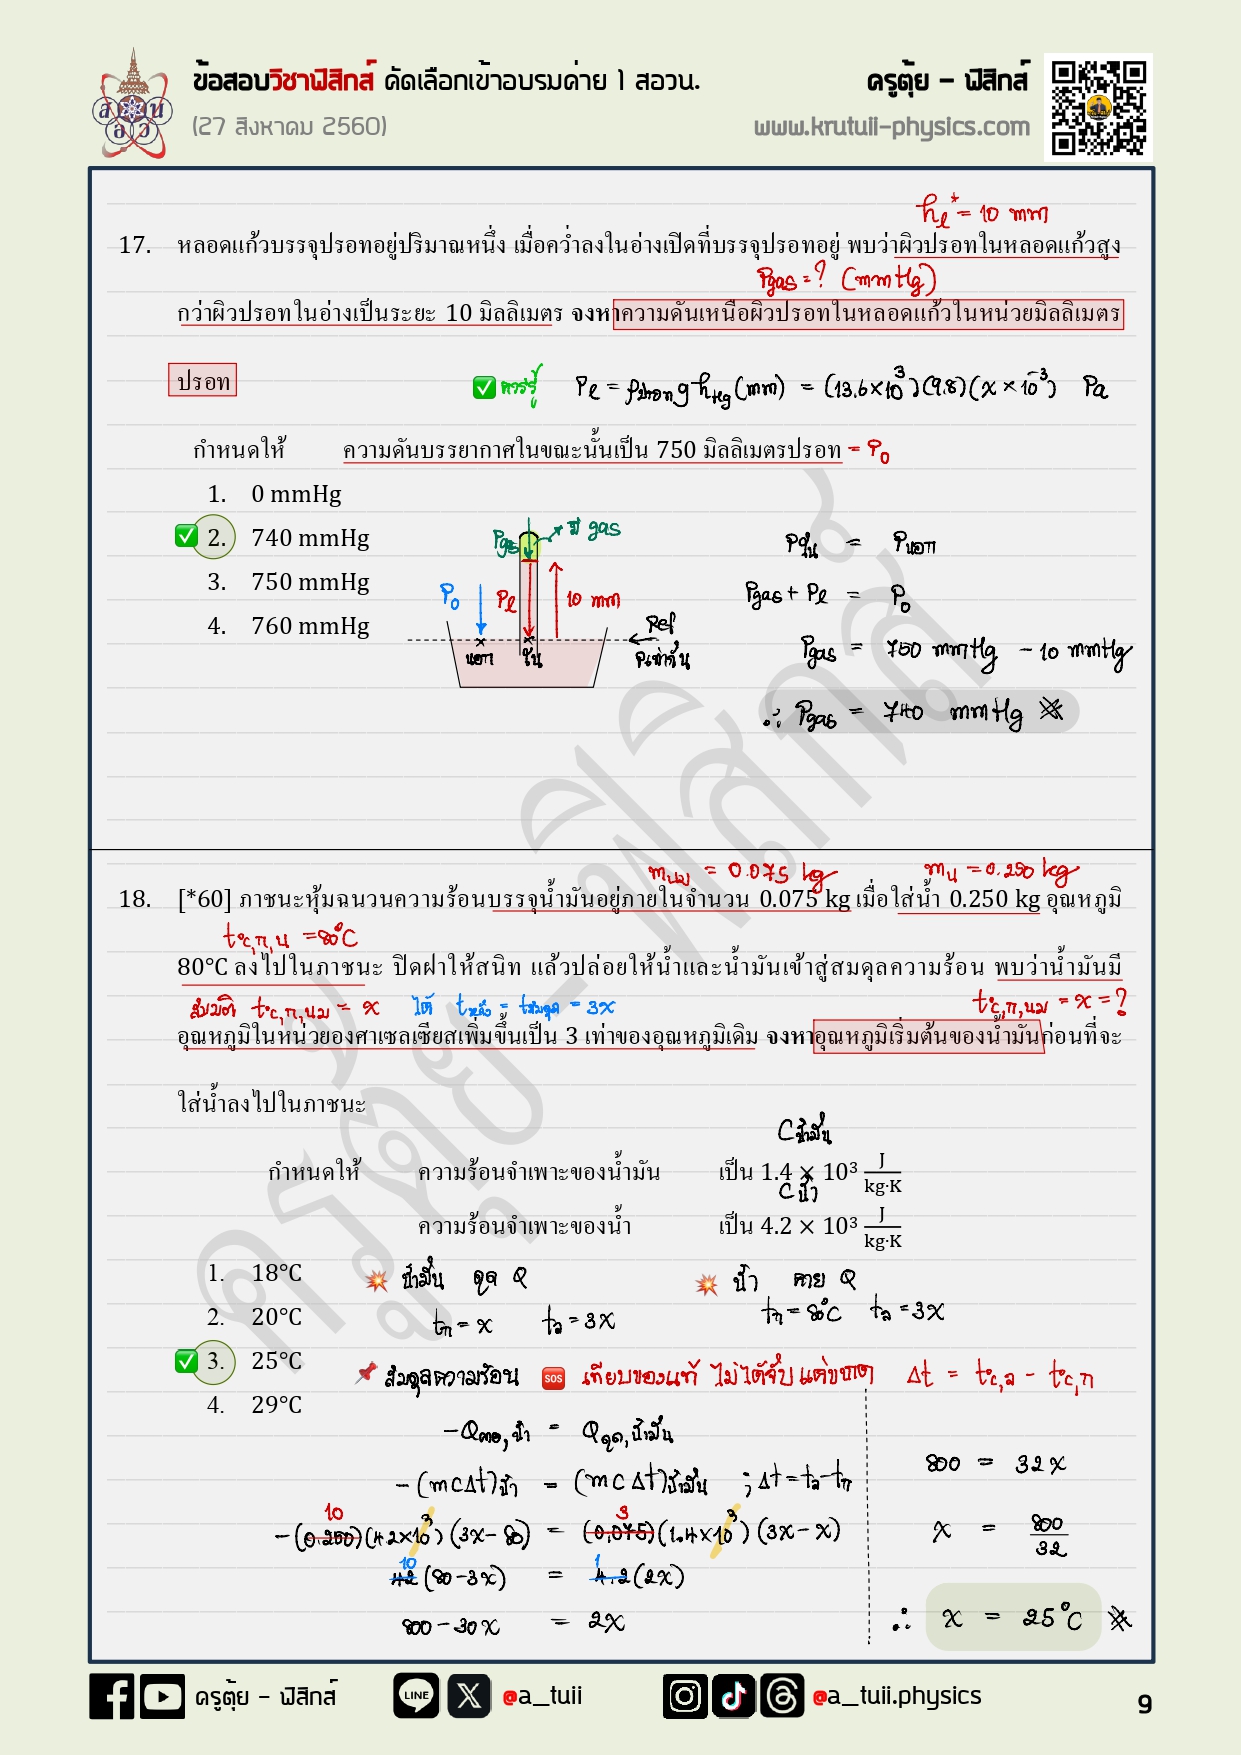 ข้อสอบวิชาฟิสิกส์ คัดเลือกเข้าอบรมค่าย 1 สอวน.
ครูตุ้ย – ฟิสิกส์
(27 สิงหาคม 2560)
www.krutuii-physics.com
hℓ* = 10 mm
17. หลอดแก้วบรรจุปรอทอยู่ปริมาณหนึ่ง เมื่อคว่ำลงในอ่างเปิดที่บรรจุปรอทอยู่ พบว่าผิวปรอทในหลอดแก้วสูง
Pgas = ? (mmHg)
กว่าผิวปรอทในอ่างเป็นระยะ 10 มิลลิเมตร จงหาความดันเหนือผิวปรอทในหลอดแก้วในหน่วยมิลลิเมตร
ปรอท
✅ ควรรู้ Pℓ = ρปรอท g hHg (mm) = (13.6×10³)(9.8)(x × 10⁻³) Pa
กำหนดให้ ความดันบรรยากาศในขณะนั้นเป็น 750 มิลลิเมตรปรอท = P₀
1. 0 mmHg
✅ 2. 740 mmHg
3. 750 mmHg
4. 760 mmHg
Pgas มี gas
P₀ Pℓ 10 mm
Ref
นอก ใน Pเท่ากัน
Pใน = Pนอก
Pgas + Pℓ = P₀
Pgas = 750 mmHg − 10 mmHg
∴ Pgas = 740 mmHg
mนม = 0.075 kg mน = 0.250 kg
18. [*60] ภาชนะหุ้มฉนวนความร้อนบรรจุน้ำมันอยู่ภายในจำนวน 0.075 kg เมื่อใส่น้ำ 0.250 kg อุณหภูมิ
t°c,ก,น = 80°C
80°C ลงไปในภาชนะ ปิดฝาให้สนิท แล้วปล่อยให้น้ำและน้ำมันเข้าสู่สมดุลความร้อน พบว่าน้ำมันมี
สมมติ t°c,ก,นม = x ได้ tหลัง = tสมดุล = 3x t°c,ก,นม = x = ?
อุณหภูมิในหน่วยองศาเซลเซียสเพิ่มขึ้นเป็น 3 เท่าของอุณหภูมิเดิม จงหาอุณหภูมิเริ่มต้นของน้ำมันก่อนที่จะ
ใส่น้ำลงไปในภาชนะ
Cน้ำมัน
กำหนดให้ ความร้อนจำเพาะของน้ำมัน เป็น 1.4 × 10³ J/kg·K
Cน้ำ
ความร้อนจำเพาะของน้ำ เป็น 4.2 × 10³ J/kg·K
1. 18°C
2. 20°C
✅ 3. 25°C
4. 29°C
💥 น้ำมัน ดูด Q 💥 น้ำ คาย Q
tก = x tล = 3x tก = 80°C tล = 3x
📌 สมดุลความร้อน SOS เทียบของแท้ ไม่ได้จับแต่ขนาด Δt = t°c,ล − t°c,ก
−Qคาย,น้ำ = Qดูด,น้ำมัน
−(mcΔt)น้ำ = (mcΔt)น้ำมัน ; Δt = tล − tก
10 3
−(0.250)(4.2×10³)(3x − 80) = (0.075)(1.4×10³)(3x − x)
10 1
42 (80 − 3x) = 4.2 (2x)
800 − 30x = 2x
800 = 32x
x = 800/32
∴ x = 25°C
ครูตุ้ย – ฟิสิกส์
LINE
@a_tuii
@a_tuii.physics
9